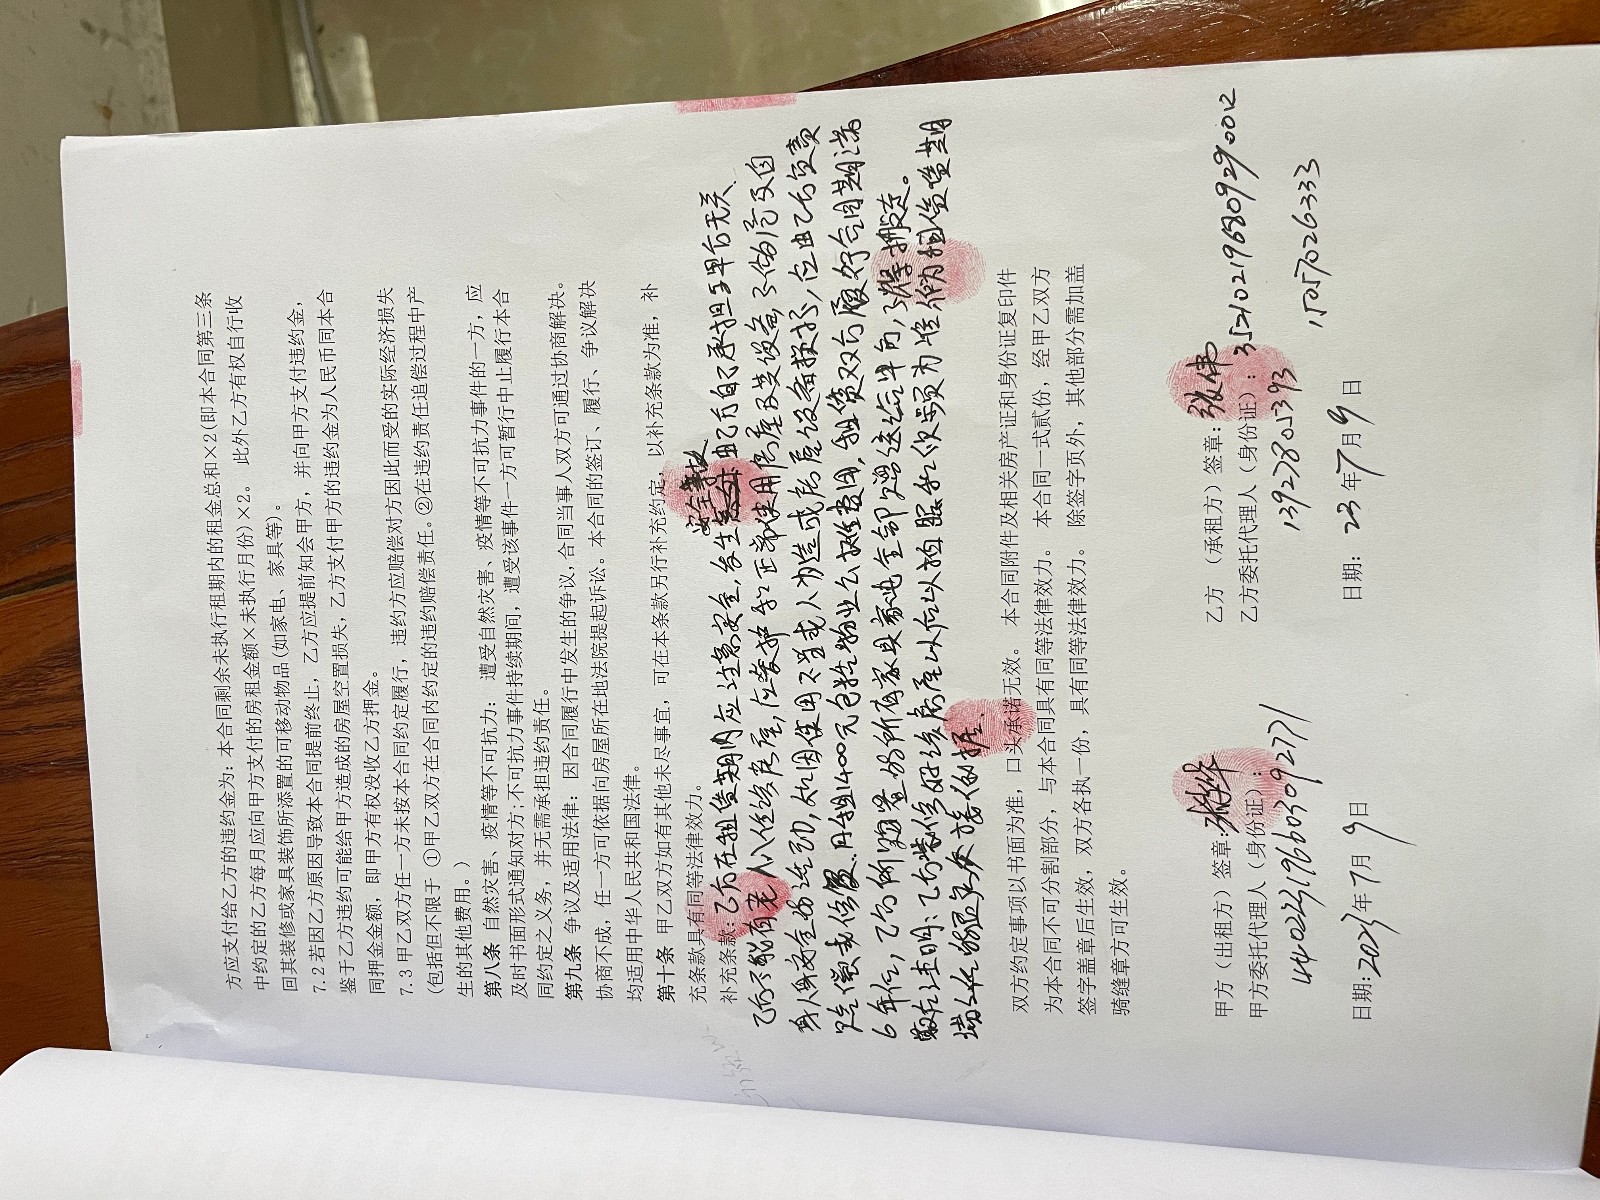 方应支付给乙方的违约金为：本合同剩余未执行租期内的租金总和×2(即本合同第三条
中约定的乙方每月应向甲方支付的房租金额×未执行月份)×2。 此外乙方有权自行收
回其装修或家具装饰所添置的可移动物品(如家电、家具等)。
7.2 若因乙方原因导致本合同提前终止，乙方应提前知会甲方，并向甲方支付违约金，
鉴于乙方违约可能给甲方造成的房屋空置损失，乙方支付甲方的违约金为人民币同本合
同押金金额，即甲方有权没收乙方押金。
7.3 甲乙双方任一方未按本合同约定履行，违约方应赔偿对方因此而受的实际经济损失
(包括但不限于 ①甲乙双方在合同内约定的违约赔偿责任。②在违约责任追偿过程中产
生的其他费用。)
第八条 自然灾害、疫情等不可抗力： 遭受自然灾害、疫情等不可抗力事件的一方，应
及时书面形式通知对方；不可抗力事件持续期间，遭受该事件一方可暂行中止履行本合
同约定之义务，并无需承担违约责任。
第九条 争议及适用法律：因合同履行中发生的争议，合同当事人双方可通过协商解决。
协商不成，任一方可依据向房屋所在地法院提起诉讼。本合同的签订、履行、争议解决
均适用中华人民共和国法律。
第十条 甲乙双方如有其他未尽事宜，可在本条款另行补充约定， 以补充条款为准，补
充条款具有同等法律效力。
补充条款：乙方在租赁期内应注意安全，发生安全事故由乙方自己承担与甲方无关.
乙方不能有老人住该房屋，应爱护和正常使用房屋及设备，不做违反自
身人身安全的活动，如因使用不当或人为造成房屋设备损坏，应由乙方负责
赔偿或修复.月租1400元包括物业公摊费用，租赁双方履行合同期满
6年后，乙方所购置的所有家具家电全部赠送给甲方，不得搬走。
双方约定事项以书面为准，口头承诺无效。 本合同附件及相关房产证和身份证复印件
为本合同不可分割部分，与本合同具有同等法律效力。 本合同一式贰份，经甲乙双方
签字盖章后生效，双方各执一份，具有同等法律效力。 除签字页外，其他部分需加盖
骑缝章方可生效。
甲方（出租方）签章：
乙方 （承租方）签章：张伟
甲方委托代理人（身份证）：
乙方委托代理人（身份证）：352102196809290012
13927802393
15057026333
日期：2023年7月9日
日期：23年7月9日